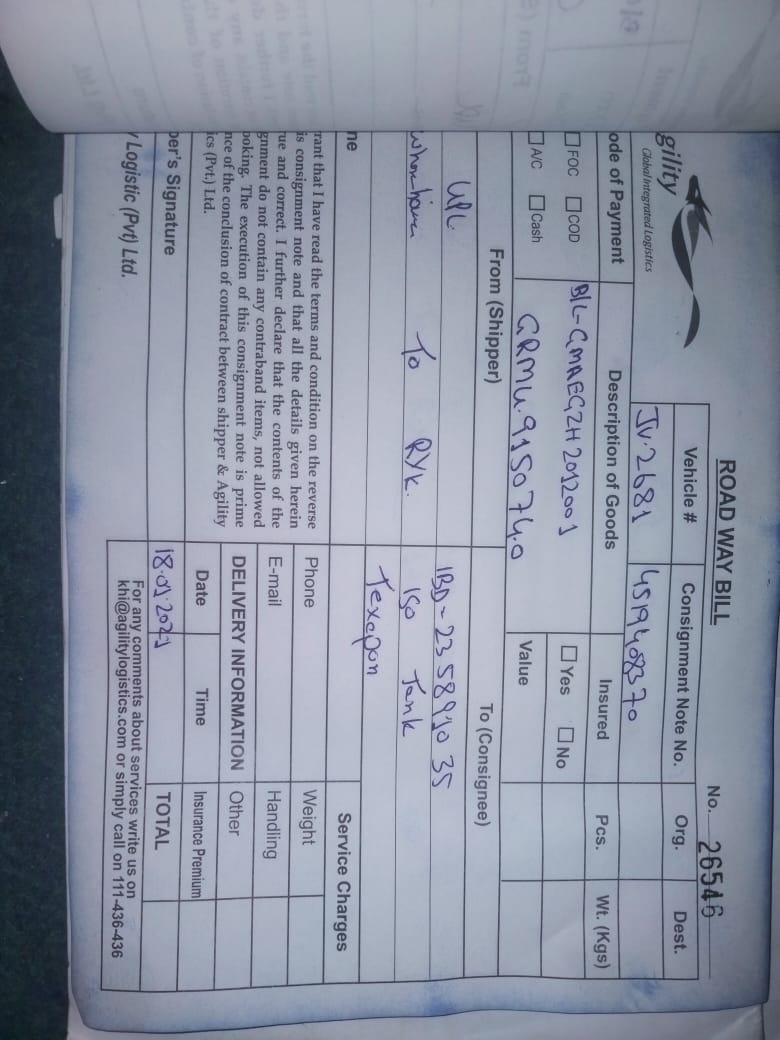 ROAD WAY BILL
No. 26546
gility
Global Integrated Logistics
Vehicle #
Consignment Note No.
Org.
Dest.
JV-2681
4519408370
ode of Payment
Description of Goods
Insured
Pcs.
Wt. (Kgs)
FOC COD
B/L-GMAEGZH2012001
Yes No
A/C Cash
GRMU.915074.0
Value
From (Shipper)
To (Consignee)
UPL
IBD-2358910 35
To RYK.
ISO Tank
Texapon
ne
Service Charges
rant that I have read the terms and condition on the reverse
is consignment note and that all the details given herein
rue and correct. I further declare that the contents of the
gnment do not contain any contraband items, not allowed
ooking. The execution of this consignment note is prime
nce of the conclusion of contract between shipper & Agility
ics (Pvt.) Ltd.
Phone
Weight
E-mail
Handling
DELIVERY INFORMATION
Other
Date
Time
Insurance Premium
per's Signature
18.01.2021
TOTAL
y Logistic (Pvt) Ltd.
For any comments about services write us on
khi@agilitylogistics.com or simply call on 111-436-436